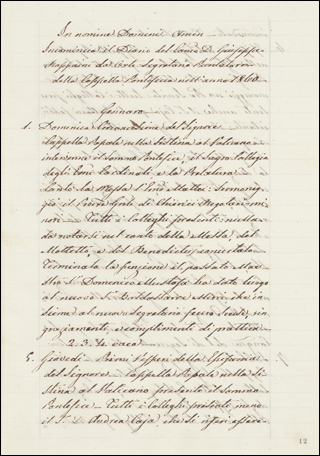 In nomine Domini Amen
Incomincia il Diario del Canto D. Giuseppe
de Conti Segretario Puntatore
della Cappella Pontificia nell'anno 1860.
Gennaro
1. Domenica Circoncisione del Signore
Cappella Papale nella Sistina al Vaticano
intervenne il Sommo Pontefice, il Sagro Collegio
degli Emi Cardinali e la Prelatura
Cantò la Messa l'Emo Mattei: Sermoneg-
giò il Proc. Gnle di Chierici Regolari mi-
nori. Tutti i colleghi presenti: nulla
da notarsi nel canto della Messa, del
Mottetto, e del Benedictus concertato
Terminata la funzione il passato Mae-
stro S. Domenico Mustafà ha dato luogo
al nuovo S. Baldassarre che in-
sieme al nuovo Segretario fecero scuse, rin-
graziamenti, e complimenti di prattica
2. 3. 4. vaca
5. Giovedì. Primi Vesperi della Epifania
del Signore. Cappella Papale nella Si-
stina al Vaticano presente il Sommo
Pontefice. Tutti i colleghi presenti meno
il S. D. Andrea che si rifarì
12